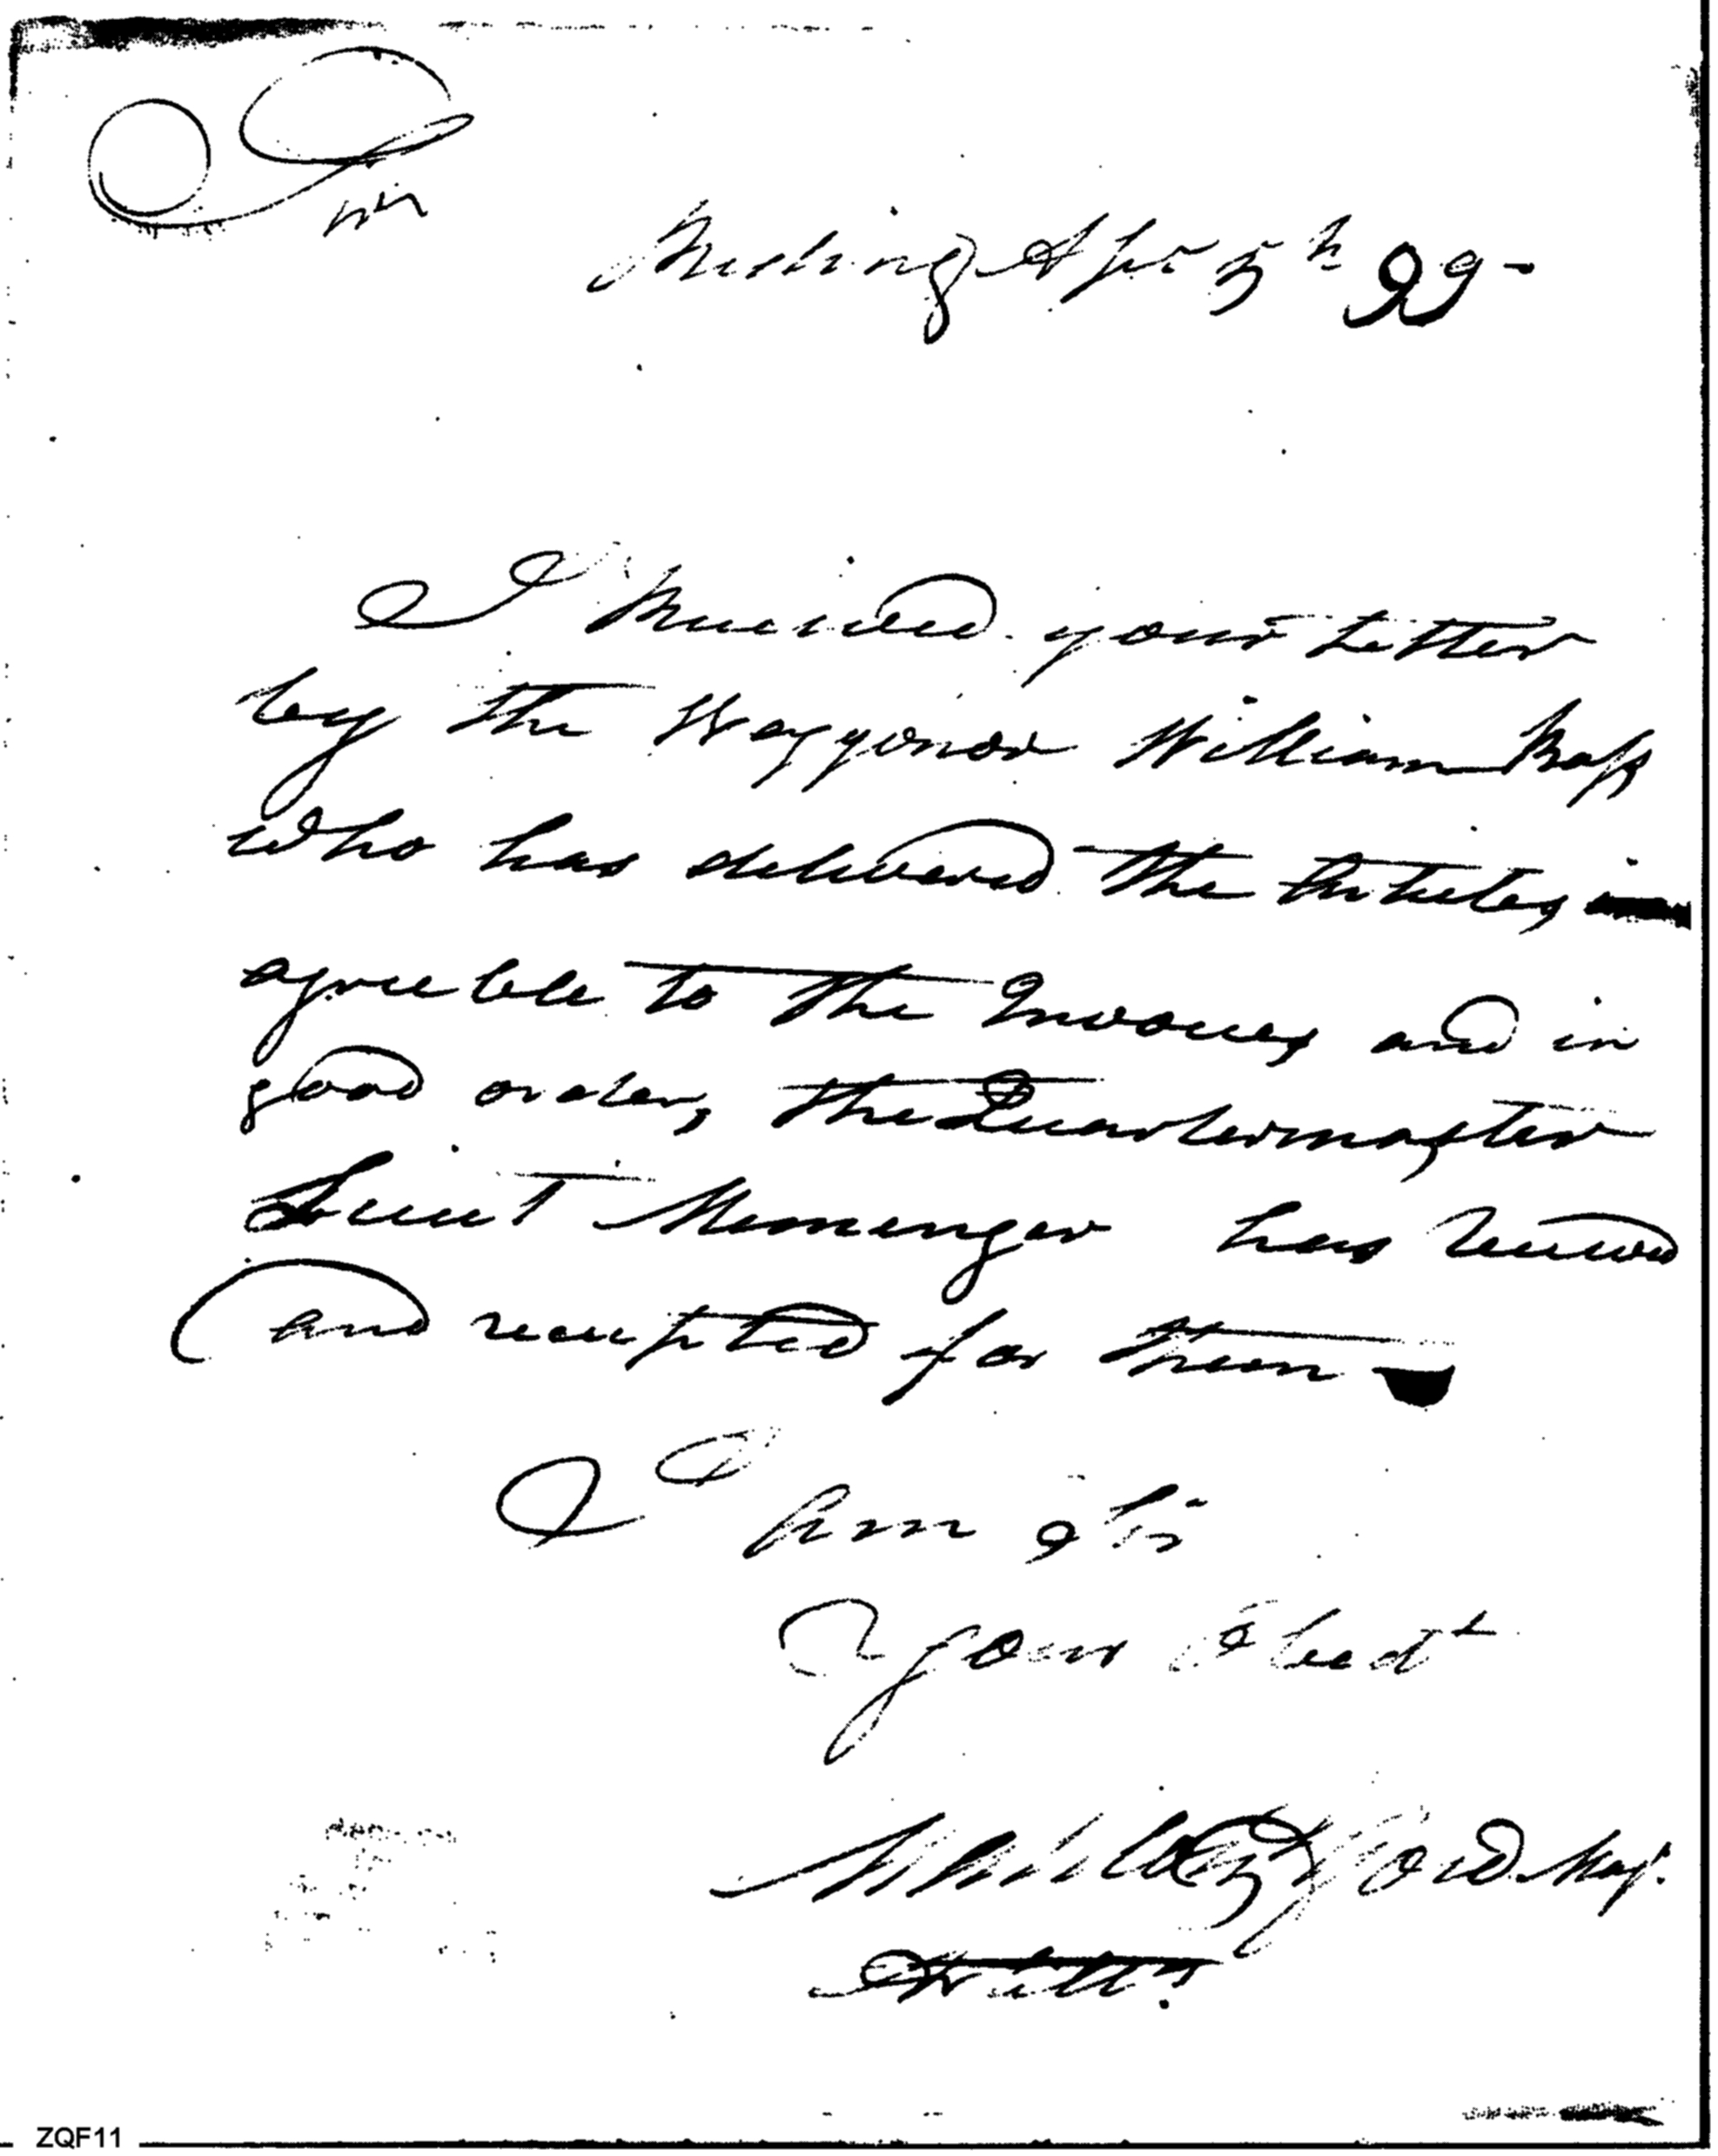 Sir
Reading Apr 5th 99 -
I Received your Letter
by the Waggoner William
who has delivered the Articles in
agreeble to the Invoices and in
good order, the Quartermaster
Lieut Memenger has Received
and receipted for them
I Am Sir
Your Obedt
Ford Maj.
Artill.
ZQF11